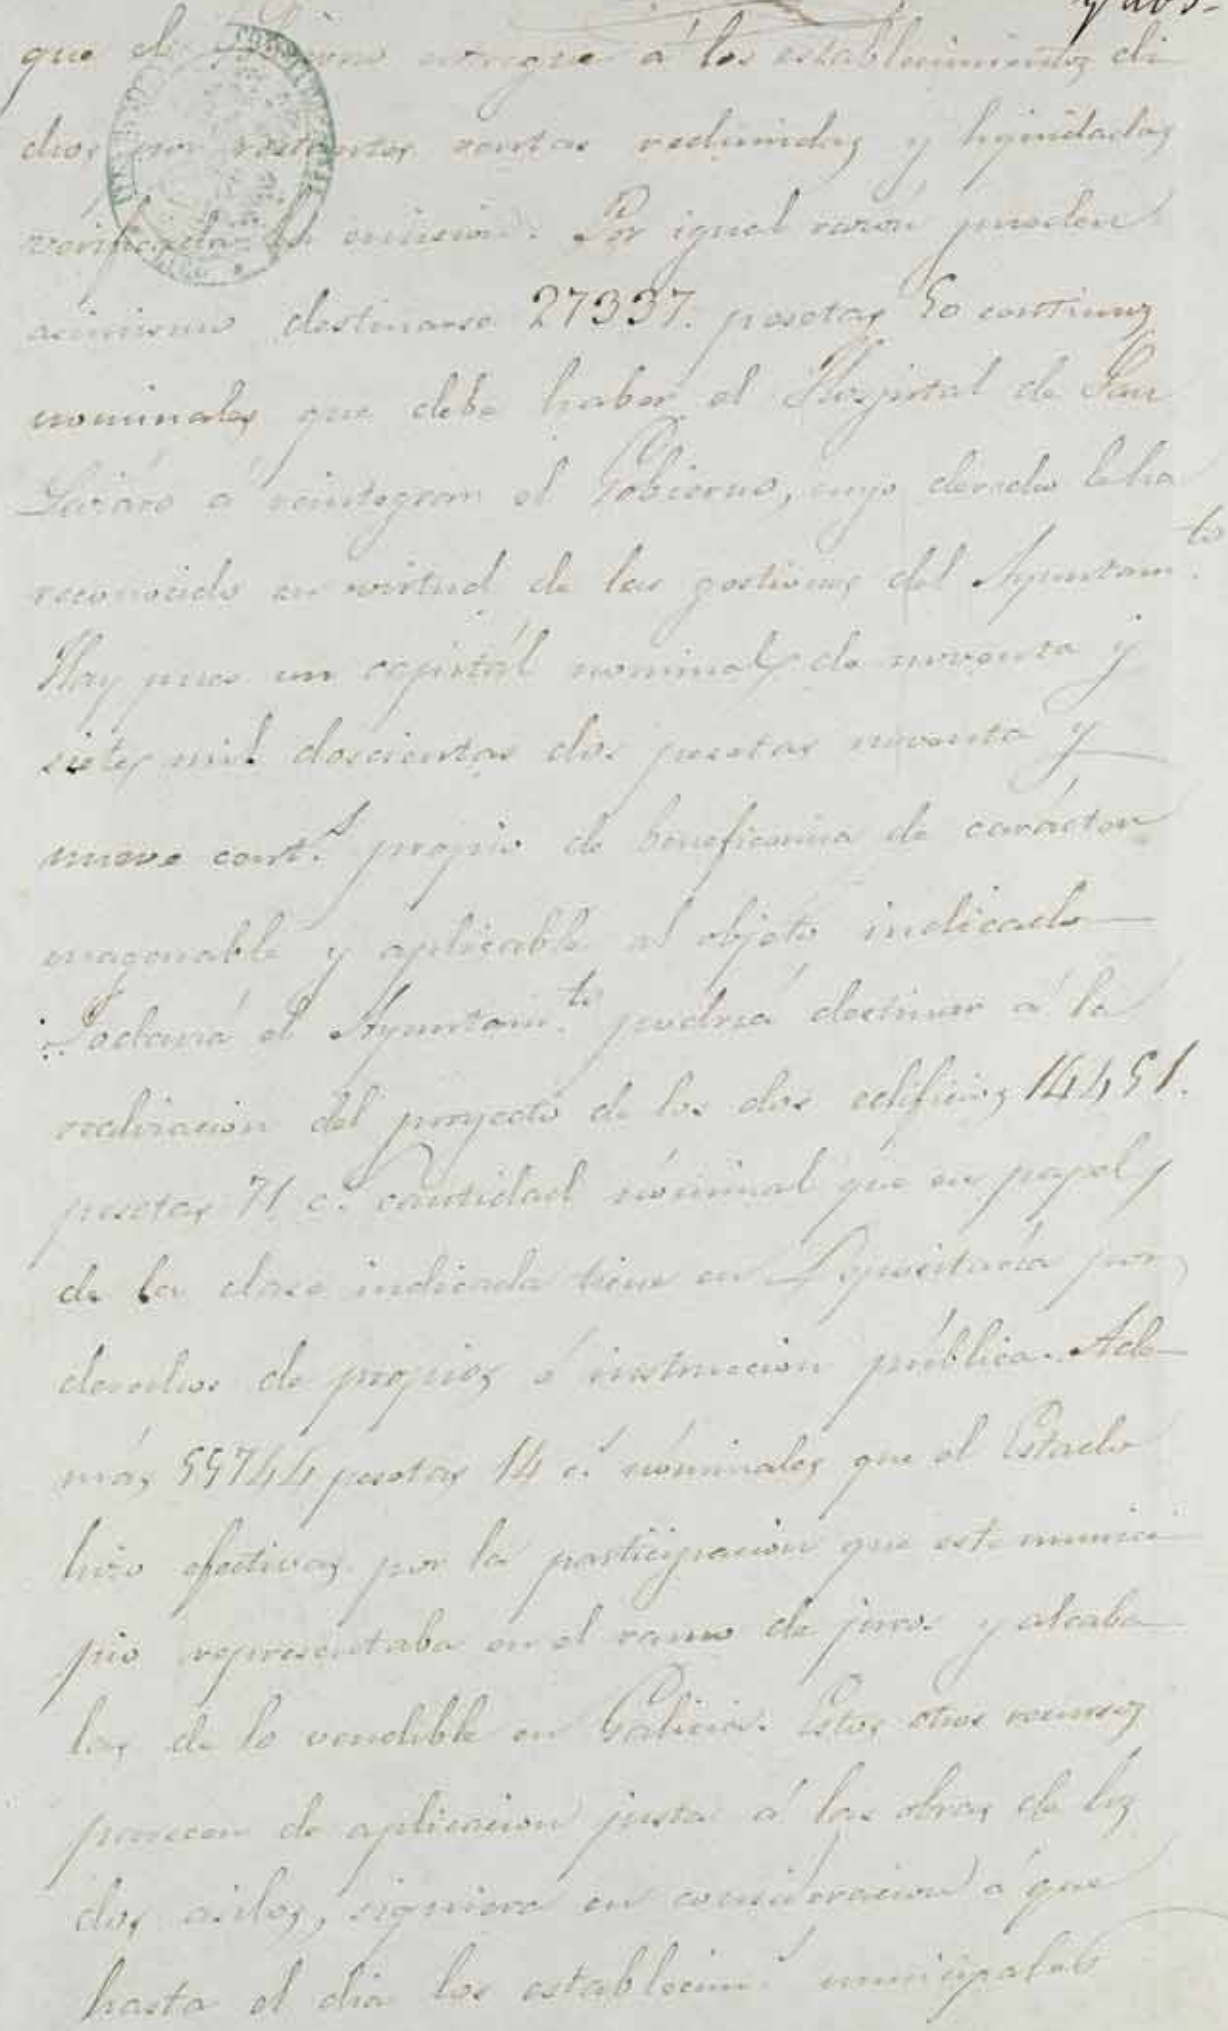 que el Gobierno entregue á los establecimientos di
chos por restantes rentas redimidas y liquidadas
verificada la emisión. Por igual razón pueden
asimismo destinarse 27337. pesetas 50 centimos
nominales que debe haber el Hospital de San
Lázaro á reintegrar el Gobierno, cuyo derecho le ha
reconocido en virtud de las gestiones del Ayuntam.to
Hay pues un capitál nominal de noventa y
siete mil doscientas dos pesetas noventa y
nueve cent.s propio de beneficencia de carácter
enagenable y aplicable al objeto indicado
Todavía el Ayuntam.to podría destinar á la
realización del proyecto de los dos edificios 14451.
pesetas 71 c. cantidad nominal que en papel
de la clase indicada tiene en Depositaría por
derechos de propios é instrucción pública. Ade-
más 55744 pesetas 14 c.s nominales que el Estado
hizo efectivas por la participación que este munici
pio representaba en el ramo de juros y alcaba
las de lo vendible en Galicia. Estos otros recursos
parecen de aplicacion justa á las obras de los
dos asilos, siquiera en consideracion á que
hasta el dia los establecim.s municipales